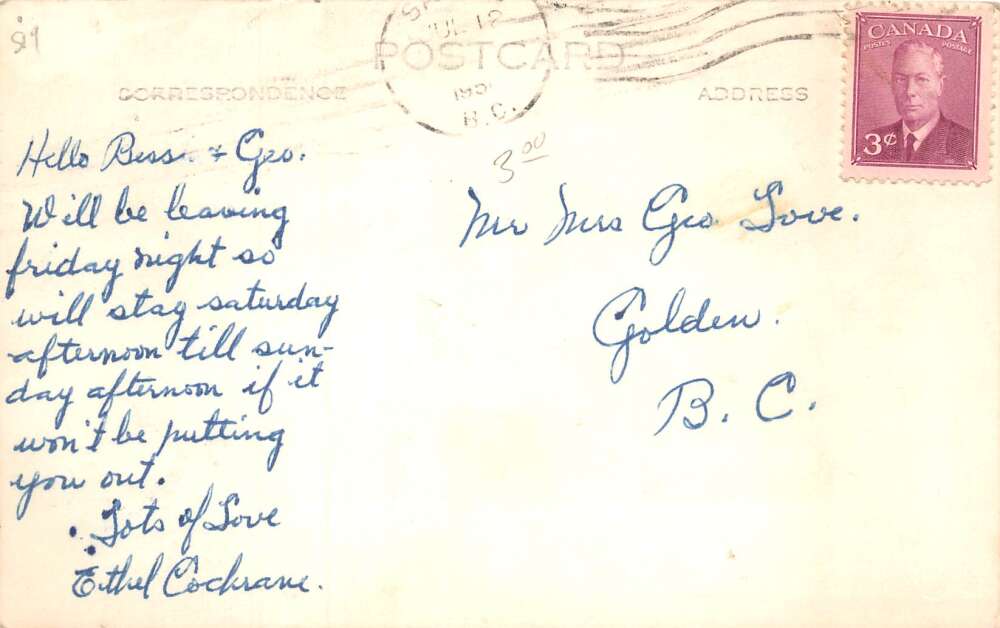 91
JUL 12
195
B.C.
POSTCARD
CORRESPONDENCE
ADDRESS
CANADA
POSTES POSTAGE
3¢
3 00
Hello Bess. & Geo.
Will be leaving
friday night so
will stay saturday
afternoon till sun-
day afternoon if it
won't be putting
you out.
Lots of Love
Ethel Cochrane.
Mr Mrs Geo Love.
Golden.
B. C.